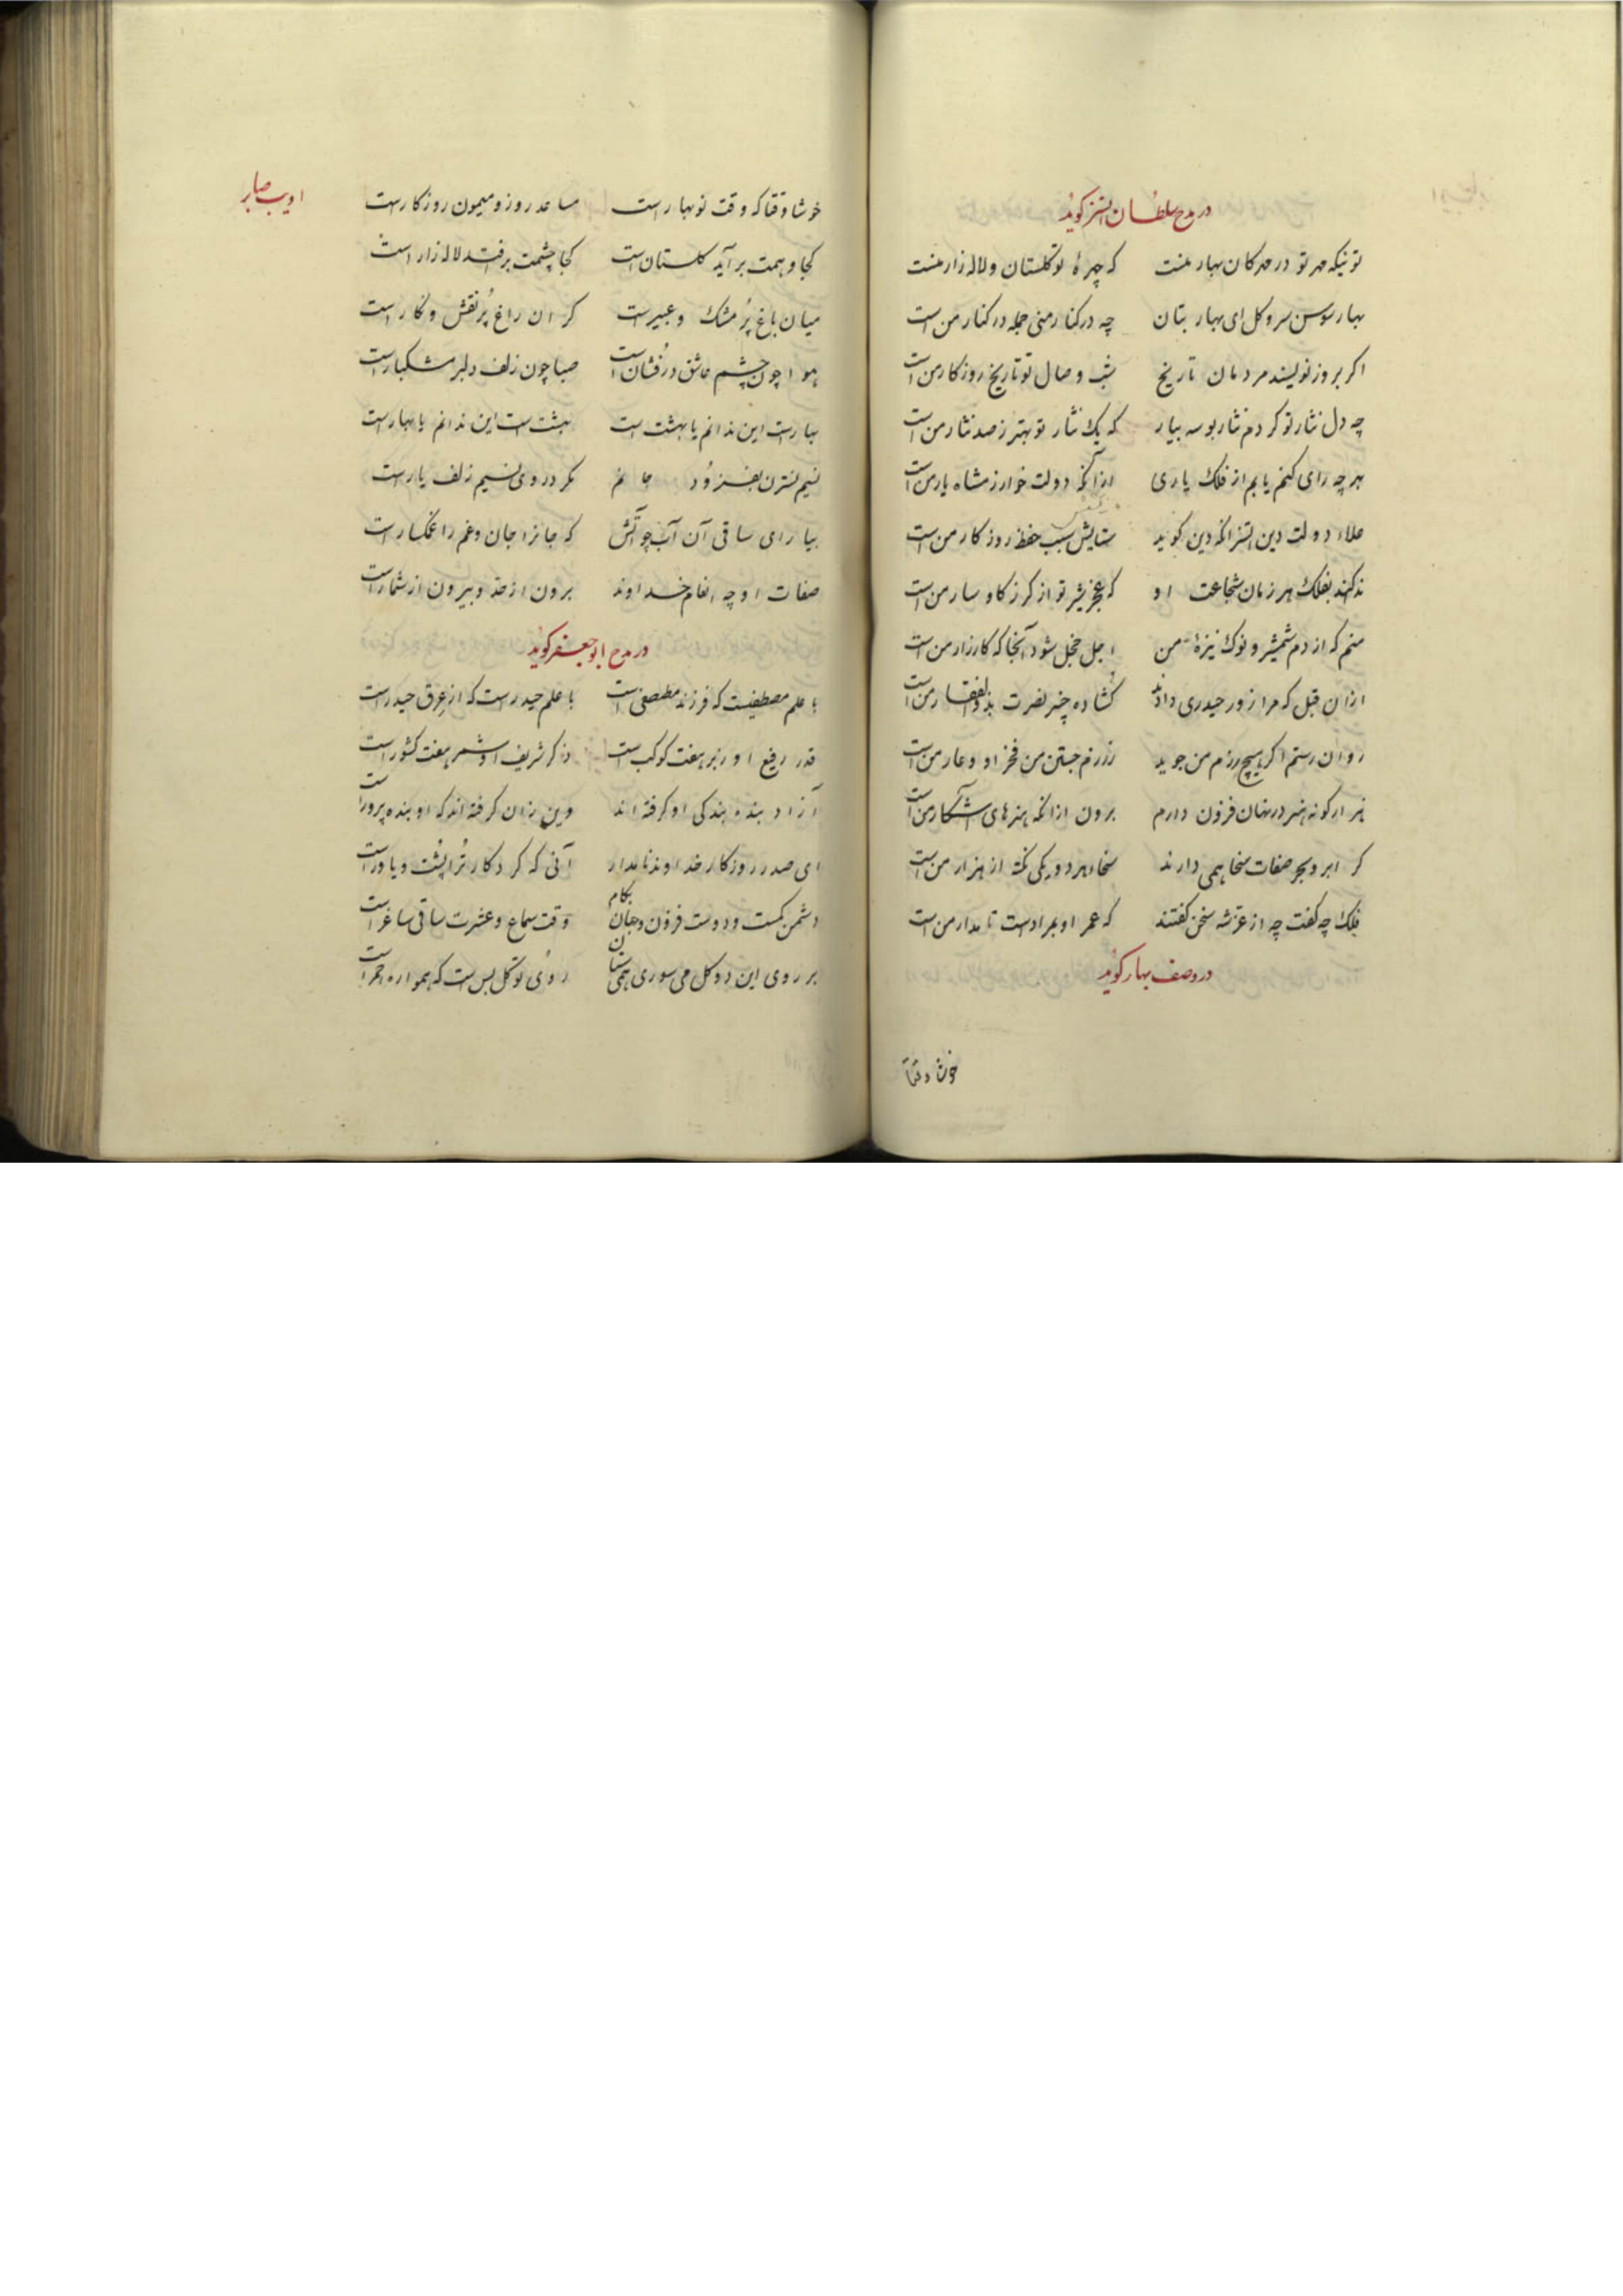 در مدح سلطان اتسز کوید
توئیکه مهر تو در مهرکان بهار منست که چهرهٔ تو کلستان و لاله زار منست
بهار سوسن سرو کل ای بهار بتان چه در کنار منی جمله در کنار من است
اکر بروز نویسند مردمان تاریخ شب وصال تو تاریخ روزکار من است
چه دل نثار تو کردم نثار بوسه بیار که یک نثار تو بهتر ز صد نثار من است
بهر چه رای کنم یابم از فلک یاری از آنکه دولت خوارزمشاه یار من است
علاء دولت دین اتسز انکه دین کوید ستایش سبب حفظ روزکار من است
ندا کند بفلک هر زمان شجاعت او که عجز شیر تو از کرز کاوسار من است
منم که از دم شمشیر و نوک نیزهٔ من اجل خجل شود آنجا که کارزار من است
ازان قبل که مرا زور حیدری دادند کشاده چنبر نصرت بذوالفقار من است
روان رستم اکر هیچ رزم من جوید ز رزم جستن من فخر او و عار من است
هزار کونه هنر در نهان فزون دارم برون ازانکه هنرهای آشکار من است
کر ابر و بحر صفات سخا همی دارند سخاء هر دو یکی نکته از هزار من است
فلک چه کفت چه از عز شه سخن کفتند که عمر او بمرادست تا مدار من است
در وصف بهار کوید
خوشا وقتا
ادیب صابر
خوشا وقتا که وقت نوبهار است مساعد روز و میمون روزکار است
کجا وهمت برآید کلستان است کجا چشمت برافتد لاله زار است
میان باغ پُر مشک و عبیر است کران راغ پُر نقش و نکار است
هوا چون چشم عاشق دُرفشان است صبا چون زلف دلبر مشکبار است
بهارست این ندانم یا بهشت است بهشت است این ندانم یا بهار است
نسیم نسترن بفزود جانم مکر در وی نسیم زلف یار است
بیار ای ساقی آن آب چو آتش که جانرا جان و غم را غمکسار است
صفات او چه انعام خداوند برون از حد و بیرون از شمار است
در مدح ابوجعفر کوید
با علم مصطفیست که فرزند مصطفی است با علم حیدر است که از عِرق حیدر است
قدر رفیع او زبر هفت کوکب است ذکر شریف او شمر هفت کشور است
آزاد بنده بندکی او کرفته اند وین زان کرفته اند که او بنده پرور است
ای صدر روزکار خداوند نامدار آنی که کردکار تُرا پُشت و یاور است
دشمن کمست و دوست فزون و جهان بکام وقت سماع و عشرت ساقی ساغر است
بر روی این دو کل می سوری همی ستان روی تو کل بس است که همواره احمر است